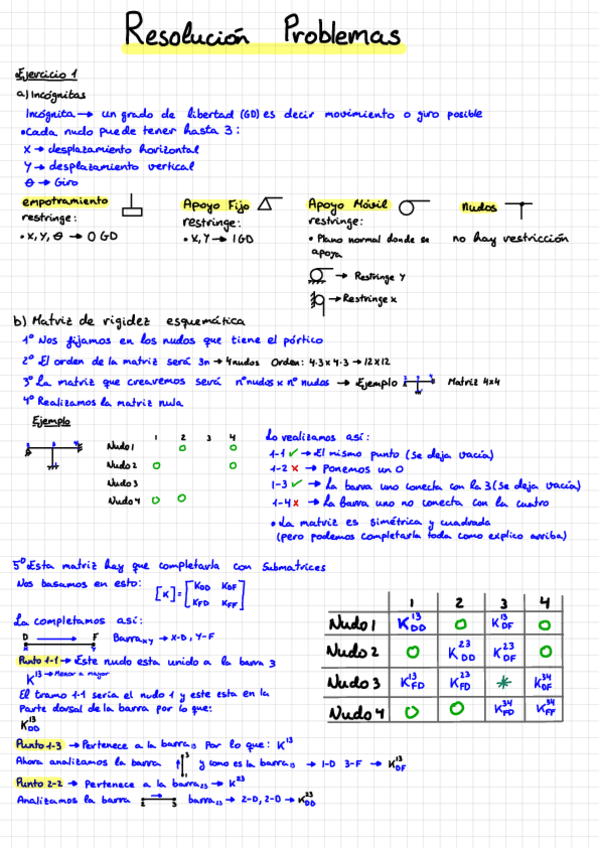 Resolución Problemas
•Ejercicio 1
a) Incógnitas
Incógnita → un grado de libertad (GD) es decir movimiento o giro posible
•Cada nudo puede tener hasta 3:
X → desplazamiento horizontal
Y → desplazamiento vertical
θ → Giro
empotramiento
restringe:
• X, Y, θ → 0 GD
Apoyo Fijo
restringe:
• X, Y → 1 GD
Apoyo Móvil
restringe:
• Plano normal donde se
apoya
→ Restringe Y
→ Restringe x
Nudos
no hay restricción
b) Matriz de rigidez esquemática
1º Nos fijamos en los nudos que tiene el pórtico
2º El orden de la matriz será 3n → 4 nudos Orden: 4·3 x 4·3 → 12 x 12
3º La matriz que crearemos será nº nudos x nº nudos → Ejemplo Matriz 4x4
4º Realizamos la matriz nula
Ejemplo
1 2 3 4
Nudo 1 0 0
Nudo 2 0 0
Nudo 3
Nudo 4 0 0
Lo realizamos así:
1-1 ✓ → El mismo punto (se deja vacía)
1-2 x → Ponemos un 0
1-3 ✓ → La barra uno conecta con la 3 (se deja vacía)
1-4 x → La barra uno no conecta con la cuatro
• La matriz es simétrica y cuadrada
(pero podemos completarla toda como explico arriba)
5º Esta matriz hay que completarla con submatrices
Nos basamos en esto: [K] = [K_DD K_DF
K_FD K_FF]
La completamos así:
D F Barra_xy → X-D, Y-F
Punto 1-1 → Este nudo esta unido a la barra 3
K^13 → Menor a mayor
El tramo 1-1 sería el nudo 1 y este esta en la
Parte dorsal de la barra por lo que:
K^13_DD
Punto 1-3 → Pertenece a la barra_13 por lo que: K^13
Ahora analizamos la barra 3 1 y como es la barra_13 → 1-D 3-F → K^13_DF
Punto 2-2 → Pertenece a la barra_23 → K^23
Analizamos la barra 2 3 barra_13 → 2-D, 2-D → K^23_DD
1 2 3 4
Nudo 1 K^13_DD 0 K^13_DF 0
Nudo 2 0 K^23_DD K^23_DF 0
Nudo 3 K^13_FD K^23_FD * K^34_DF
Nudo 4 0 0 K^34_FD K^34_FF